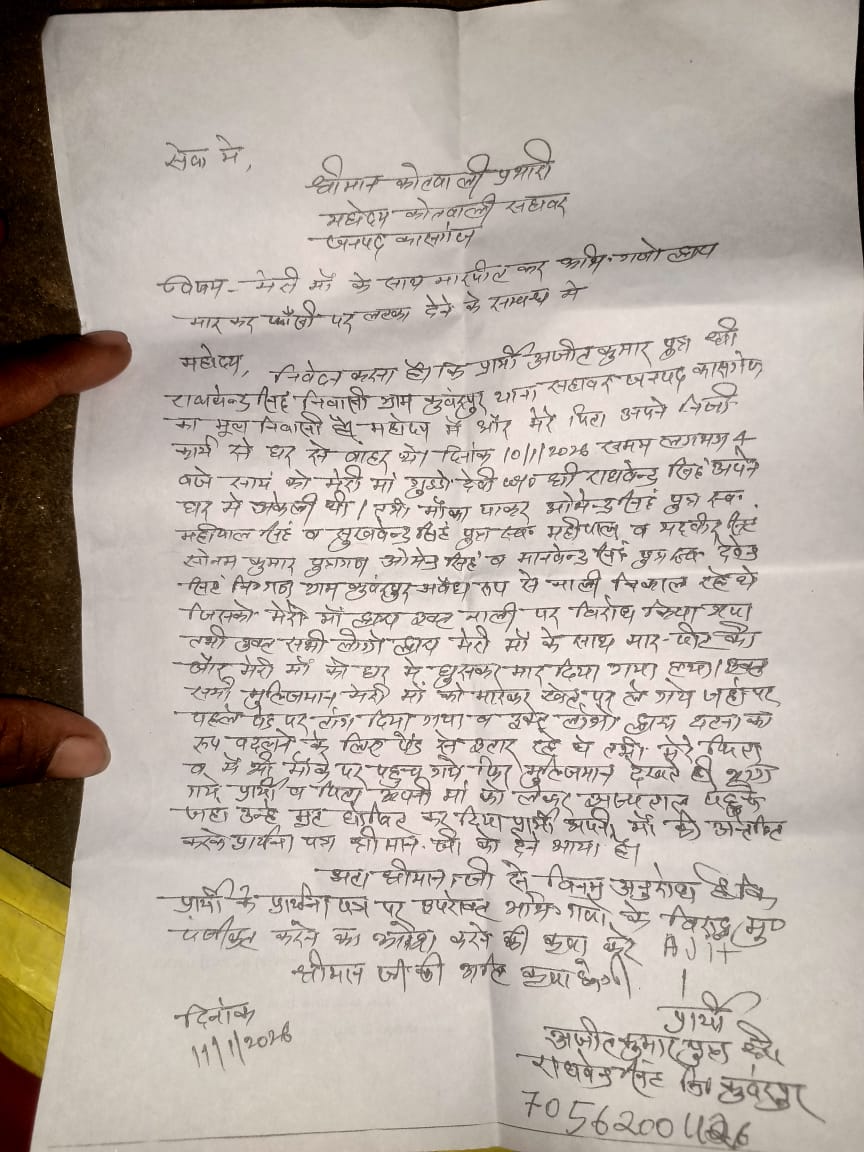 सेवा मे,
श्रीमान कोतवाली प्रभारी
महोदय कोतवाली सहावर
जनपद कासगंज
विषय - मेरी माँ के साथ मारपीट कर अभि.गणो द्वारा
मार कर फाँसी पर लटका देने के सम्बन्ध मे
महोदय, निवेदन करना है कि प्रार्थी अजीत कुमार पुत्र श्री
राघवेन्द्र सिंह निवासी ग्राम कुवंरपुर थाना सहावर जनपद कासगंज
का मूल निवासी है महोदय मे और मेरे पिता अपने निजी
कार्य से घर से बाहर थे। दिनांक 10/1/2026 समय लगभग 4
बजे सायं को मेरी मां गुड्डो देवी w/o श्री राघवेन्द्र सिंह अपने
घर मे अकेली थी। तभी मौका पाकर ओमेन्द्र सिंह पुत्र स्व.
महीपाल सिंह व सुखवेन्द्र सिंह पुत्र स्व. महीपाल व सिंह
सोनम कुमार पुत्रगण ओमेन्द्र सिंह व मानवेन्द्र सिंह पुत्र
सिंह नि.गण ग्राम कुवंरपुर अवैध रूप से नाली निकाल रहे थे
जिसको मेरी माँ द्वारा उक्त नाली पर विरोध किया गया
तभी उक्त सभी लोगो द्वारा मेरी माँ के साथ मार-पीट की
और मेरी माँ को घर मे घुसकर मार दिया गया तथा उक्त
सभी मुल्जिमान मेरी माँ को मारकर खेत पर ले गये जहां पर
पहले पेड पर टांग दिया गया व उक्त लोगो द्वारा घटना का
रूप बदलने के लिए पेड से उतार रहे थे तभी मेरे पिता
व मे भी मौके पर पहुच गये फिर मुल्जिमान देखते ही भाग
गये प्रार्थी व पिता अपनी मां को लेकर अस्पताल पहुचे
जहा उन्हे मृत घोषित कर दिया प्रार्थी अपनी माँ की
करके प्रार्थना पत्र श्रीमान जी को देने आया है।
अतः श्रीमान जी से विनम्र अनुरोध है कि
प्रार्थी के प्रार्थना पत्र पर उपरोक्त अभि.गणो के विरुद्ध मु०
पंजीकृत करने का आदेश करने की कृपा करे
AJIT
श्रीमान जी की अति कृपा होगी।
प्रार्थी
दिनांक
11/1/2026
अजीत कुमार पुत्र श्री
राघवेन्द्र सिंह नि० कुवंरपुर